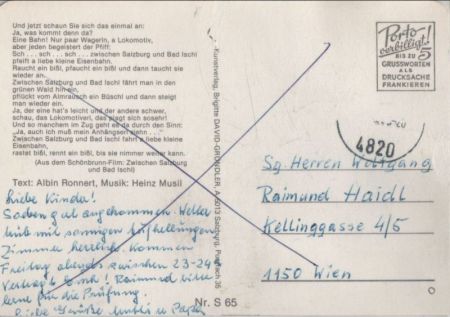 Und jetzt schaun Sie sich das einmal an:
Ja, was kommt denn da?
Eine Bahn! Nur paar Wagerln, a Lokomotiv,
aber jeden begeistert der Pfiff:
Sch . . . sch . . . sch . . . zwischen Salzburg und Bad Ischl
pfeift a liebe kleine Eisenbahn.
Raucht ein bißl, pfaucht ein bißl und dann taucht sie
wieder an.
Zwischen Salzburg und Bad Ischl fährt man in den
grünen Wald hin ein,
pflückt vom Almrausch ein Büschl und dann steigt
man wieder ein.
Ja, der eine hat's leicht und der andere schwer,
schau, das Lokomotiverl, das plagt sich sosehr!
Und so marchen im Zug geht es da durch den Sinn:
„Ja, auch ich muß mein Anhängserl ziehn . . ."
Zwischen Salzburg und Bad Ischl fahrt a liebe kleine
Eisenbahn,
rastet bißl, rennt ein bißl, bis sie nimmer weiter kann.
(Aus dem Schönbrunn-Film: Zwischen Salzburg
und Bad Ischl)
Text: Albin Ronnert, Musik: Heinz Musil
Liebe Kinder!
Soeben gut angekommen. Wetter
trüb mit sonnigen Aufhellungen
Zimmer herrlich. Kommen
Freitag abends zwischen 23-24
Vertragt Euch! Raimund bitte
lerne für die Prüfung.
Liebe Grüße Mutti u Papa
Nr. S 65
Kunstverlag, Brigitte DAVID-GRÜNDLER, A-5013 Salzburg, Postfach 35
Porto
verbilligt!
BIS ZU
5
GRUSSWORTEN
ALS
DRUCKSACHE
FRANKIEREN
4820
Sg. Herren Wolfgang
Raimund Haidl
Kellinggasse 4/5
1150 Wien